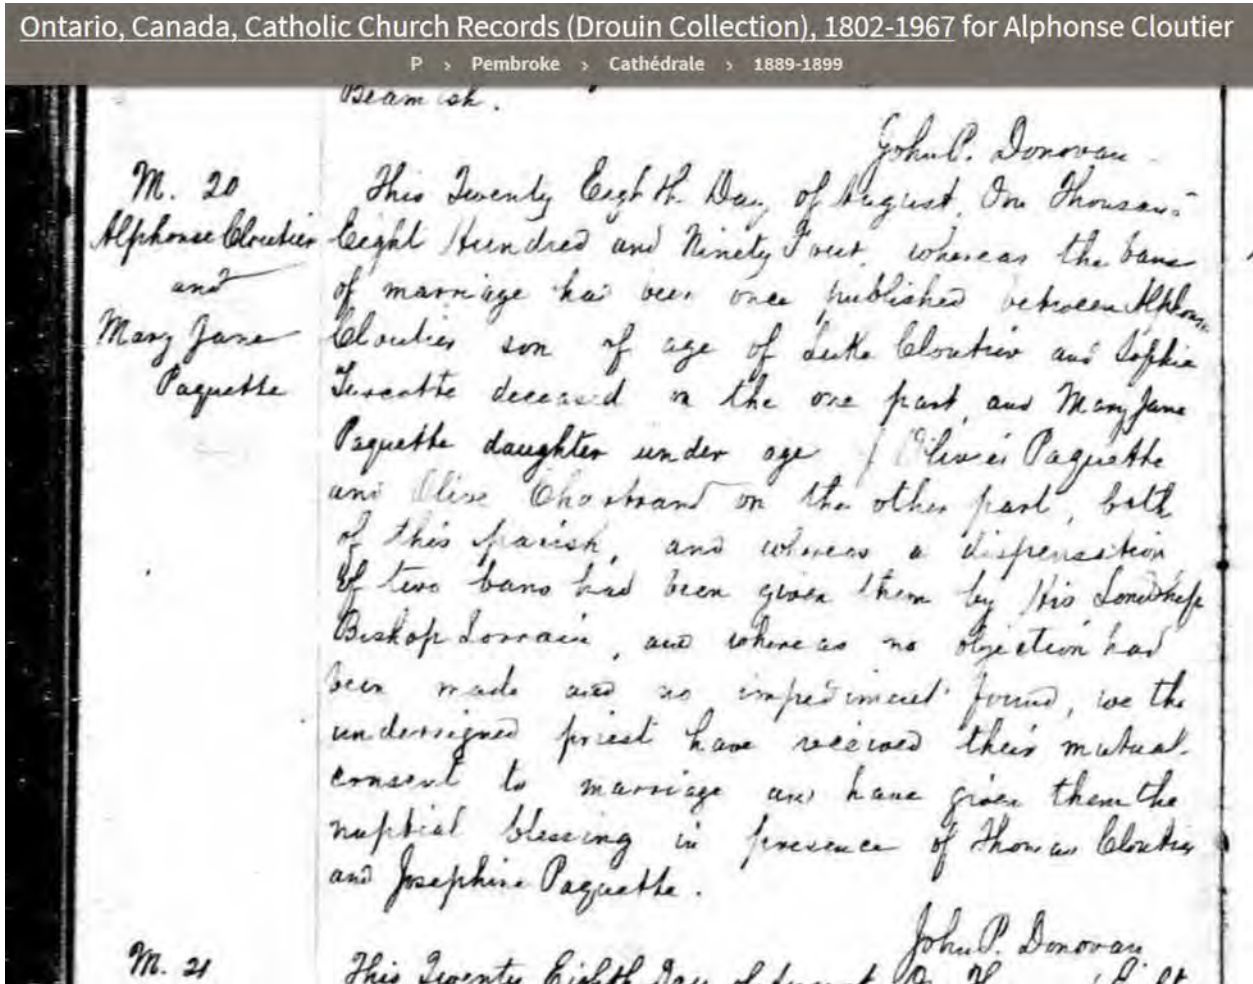 Ontario, Canada, Catholic Church Records (Drouin Collection), 1802-1967 for Alphonse Cloutier
P > Pembroke > Cathédrale > 1889-1899
Beamish.
John P. Donovan
M. 20
Alphonse Cloutier
and
Mary Jane
Paquette
This Twenty Eighth Day of August, One Thousand
Eight Hundred and Ninety Four, whereas the bans
of marriage had been once published between Alphonse
Cloutier son of age of Luke Cloutier and Sophie
Turcotte deceased on the one part, and Mary Jane
Paquette daughter under age of Olivier Paquette
and Olive Chartrand on the other part, both
of this parish, and whereas a dispensation
of two bans had been given them by His Lordship
Bishop Lorrain, and whereas no objection had
been made and no impediment found, we the
undersigned priest have received their mutual
consent to marriage and have given them the
nuptial blessing in presence of Thomas Cloutier
and Josephine Paquette.
John P. Donovan
M. 21
This Twenty Eighth Day of August